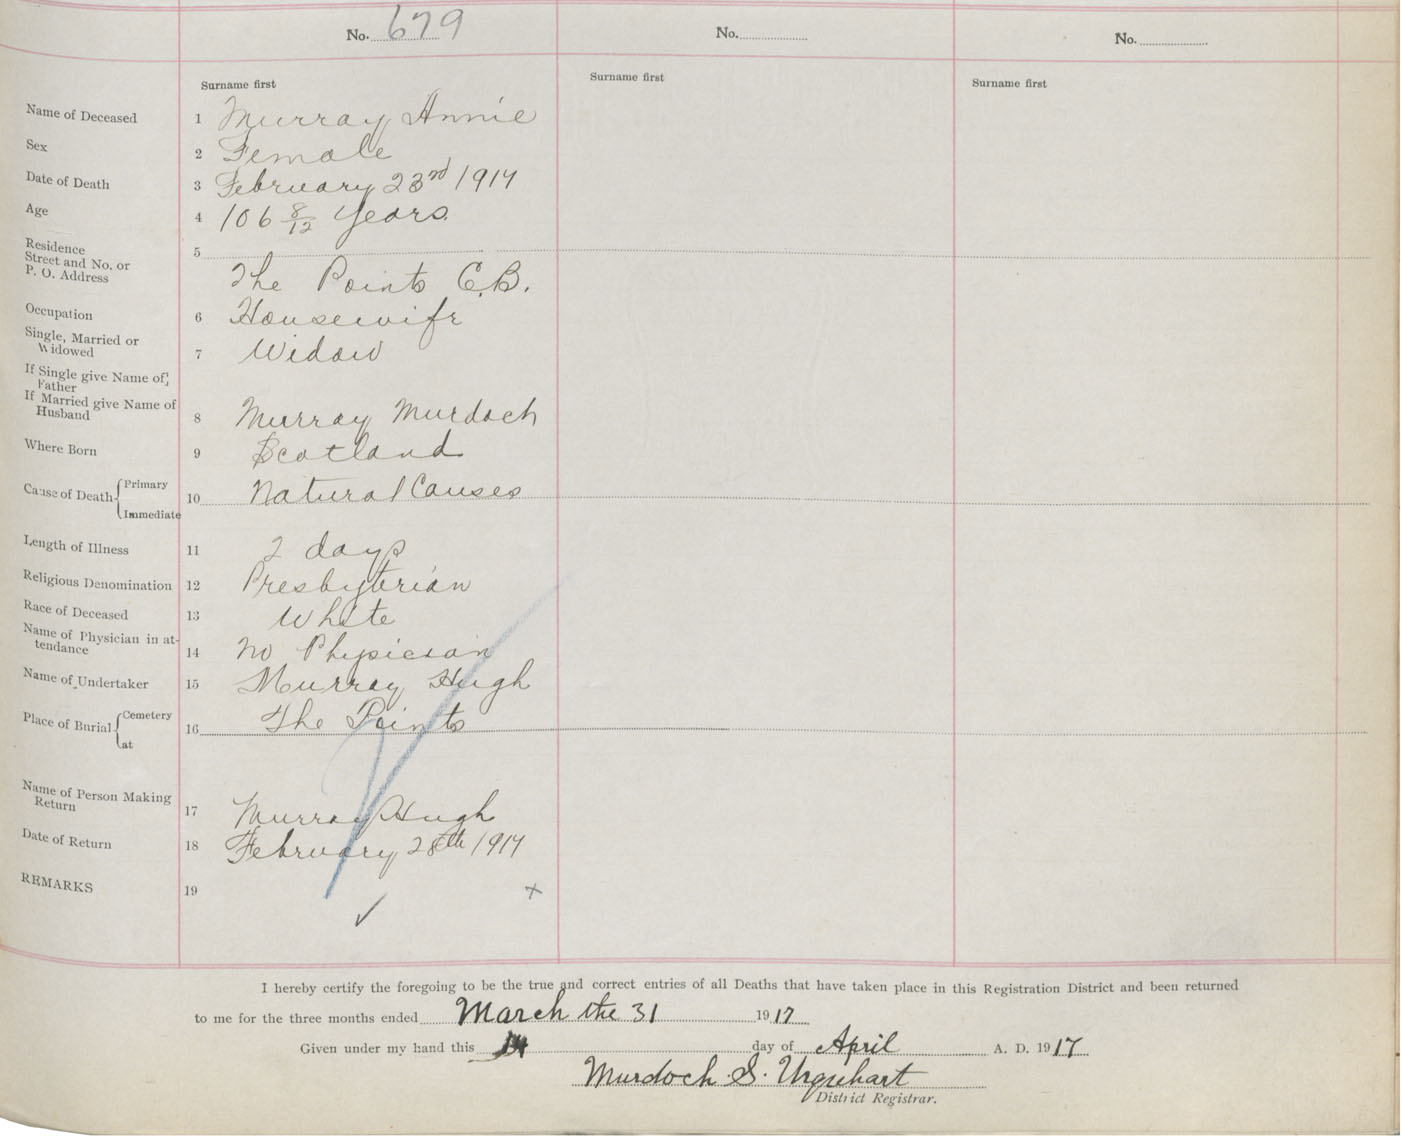 No. 679
No.
No.
Surname first
Surname first
Surname first
Name of Deceased 1 Murray Annie
Sex 2 Female
Date of Death 3 February 23rd 1917
Age 4 106 8/12 Years
Residence 5
Street and No. or
P. O. Address The Points C.B.
Occupation 6 Housewife
Single, Married or
Widowed 7 Widow
If Single give Name of
Father
If Married give Name of
Husband 8 Murray Murdoch
Where Born 9 Scotland
Cause of Death Primary
10 Natural Causes
Immediate
Length of Illness 11 2 days
Religious Denomination 12 Presbyterian
Race of Deceased 13 White
Name of Physician in at-
tendance 14 No Physician
Name of Undertaker 15 Murray Hugh
Place of Burial Cemetery
16 The Points
at
Name of Person Making
Return 17 Murray Hugh
Date of Return 18 February 28th 1917
REMARKS 19
I hereby certify the foregoing to be the true and correct entries of all Deaths that have taken place in this Registration District and been returned
to me for the three months ended March the 31 1917
Given under my hand this day of April A. D. 1917
Murdoch S. Urquhart
District Registrar.